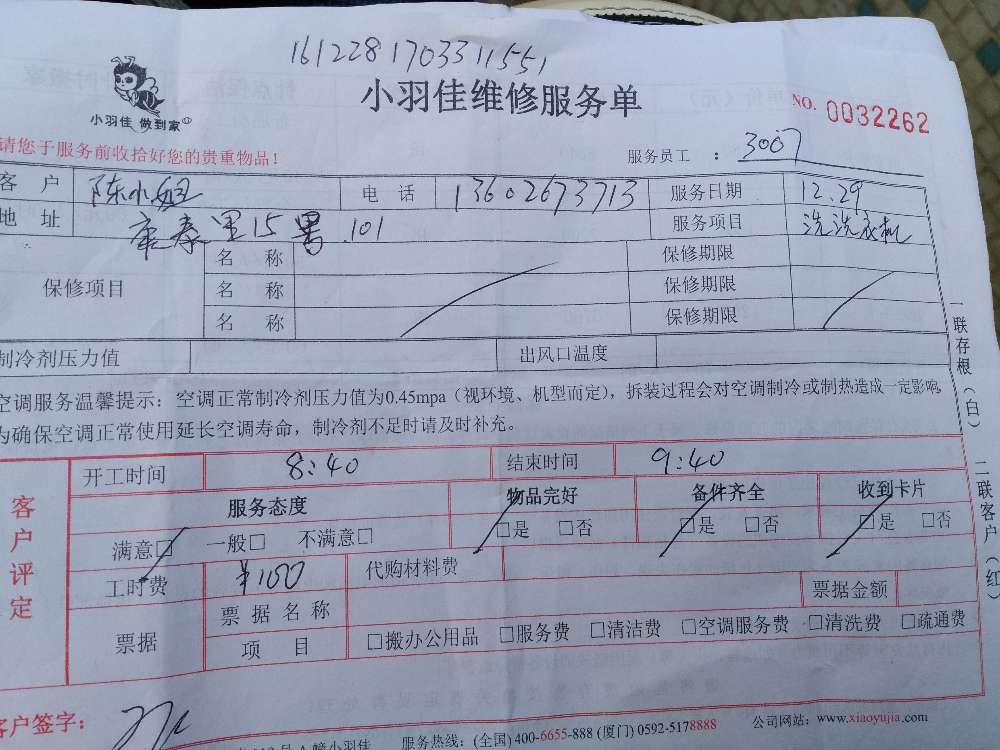 161228170331 1551
小羽佳维修服务单
小羽佳 做到家
NO. 0032262
请您于服务前收拾好您的贵重物品！
服务员工 ： 3007
客 户 陈小姐 电 话 13602673713 服务日期 12.29
地 址 康泰里15号 101 服务项目 洗洗衣机
保修项目 名 称 保修期限
名 称 保修期限
名 称 保修期限
制冷剂压力值 出风口温度
空调服务温馨提示：空调正常制冷剂压力值为0.45mpa（视环境、机型而定），拆装过程会对空调制冷或制热造成一定影响
为确保空调正常使用延长空调寿命，制冷剂不足时请及时补充。
客户评定
开工时间 8:40 结束时间 9:40
服务态度 物品完好 备件齐全 收到卡片
满意□ 一般□ 不满意□ □是 □否 □是 □否 □是 □否
工时费 ¥100 代购材料费
票据 票 据 名 称 票据金额
项 目 □搬办公用品 □服务费 □清洁费 □空调服务费 □清洗费 □疏通费
客户签字：
A幢小羽佳 服务热线：(全国) 400-6655-888 (厦门) 0592-5178888 公司网站：www.xiaoyujia.com
一联存根（白）
二联客户（红）